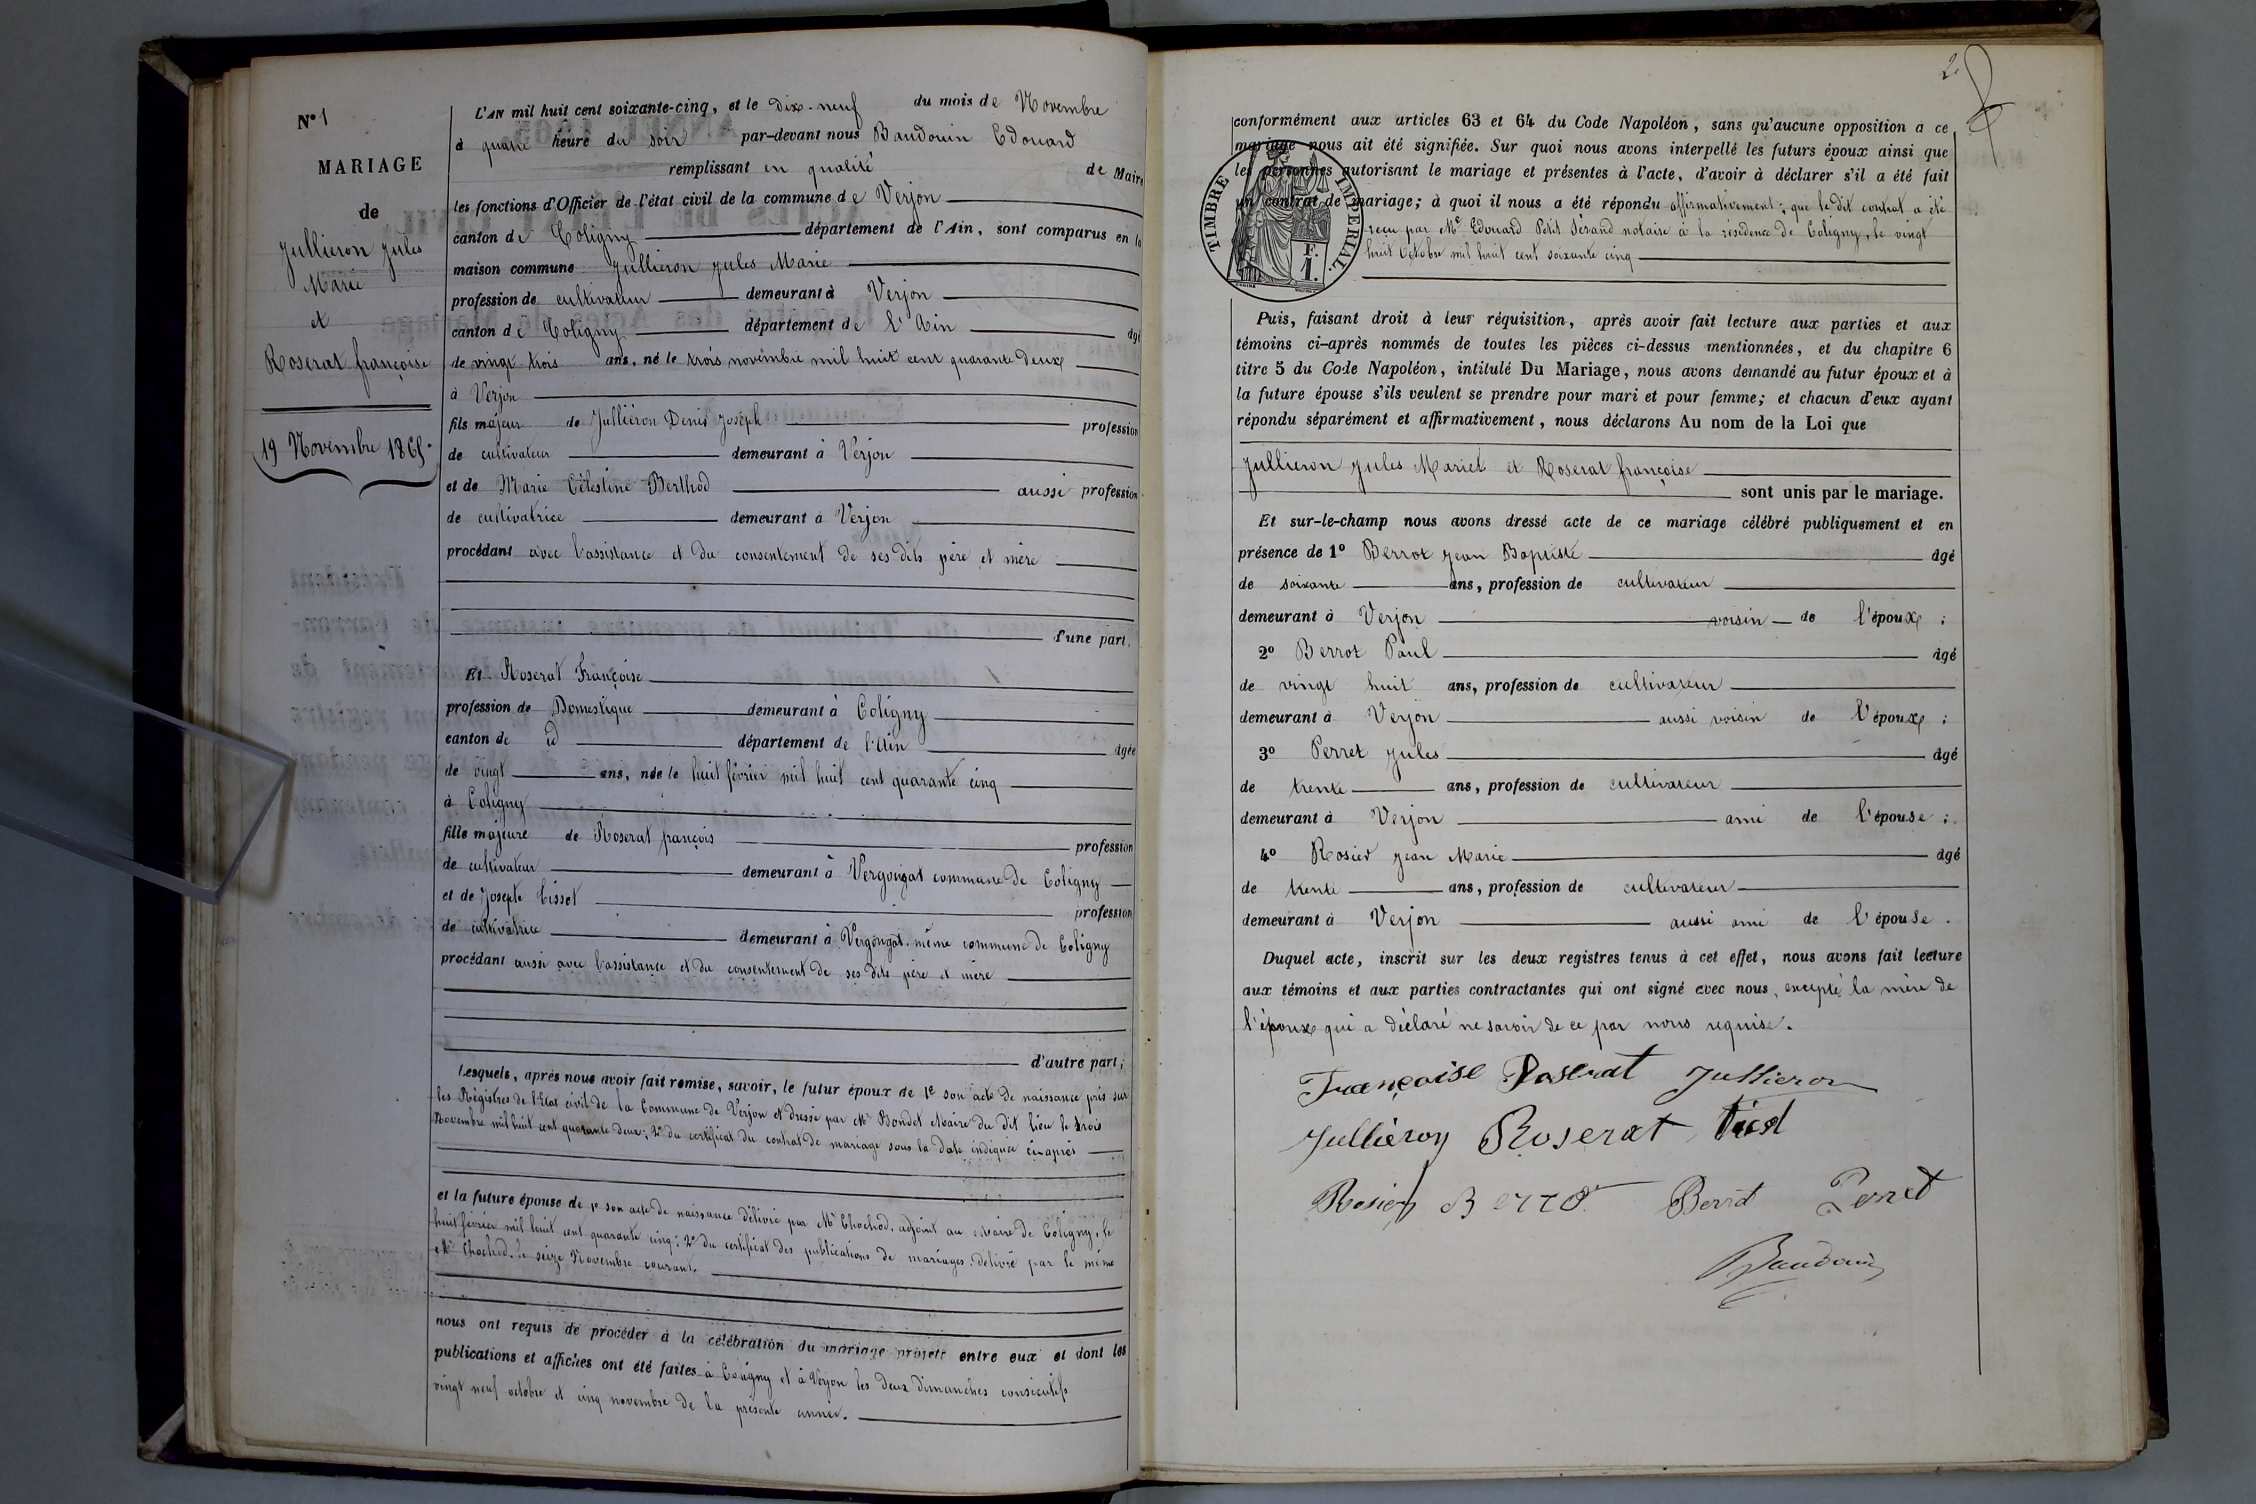 N° 1
MARIAGE
de
Jullieron Jules
Marie
et
Roserat françoise
19 Novembre 1865.
L'AN mil huit cent soixante-cinq, et le dix-neuf du mois de Novembre
à quatre heure du soir par-devant nous Baudouin Edouard
remplissant en qualité de Maire
les fonctions d'Officier de l'état civil de la commune de Verjon
canton de Coligny département de l'Ain, sont comparus en la
maison commune Jullieron Jules Marie
profession de cultivateur demeurant à Verjon
canton de Coligny département de L'Ain âgé
de vingt trois ans, né le trois novembre mil huit cent quarante deux
à Verjon
fils majeur de Jullièron Denis Joseph profession
de cultivateur demeurant à Verjon
et de Marie Célestine Berthod aussi profession
de cultivatrice demeurant à Verjon
procédant avec l'assistance et du consentement de ses dits père et mère
d'une part.
Et Roserat Françoise
profession de Domestique demeurant à Coligny
canton de id département de l'Ain âgée
de vingt ans, née le huit février mil huit cent quarante cinq
à Coligny
fille majeure de Roserat françois profession
de cultivateur demeurant à Vergongat commune de Coligny
et de Josepte Tissot profession
de cultivatrice demeurant à Vergongat même commune de Coligny
procédant aussi avec l'assistance et du consentement de ses dits père et mère
d'autre part;
Lesquels, après nous avoir fait remise, savoir, le futur époux de 1° son acte de naissance pris sur
les Régistres de l'Etat civil de la Commune de Verjon et dressé par Mr Bondet Maire du dit lieu le trois
Novembre mil huit cent quarante deux; 2° du certificat du contrat de mariage sous la date indiquée ci-après
et la future épouse de 1° son acte de naissance délivré par Mr Chochod, adjoint au Maire de Coligny, le
huit février mil huit cent quarante cinq; 2° du certificat des publications de mariages délivré par le même
Mr Chochod, le seize Novembre courant.
nous ont requis de procéder à la célébration du mariage projeté entre eux et dont les
publications et affiches ont été faites à Coligny et à Verjon les deux dimanches consécutifs
vingt neuf octobre et cinq novembre de la présente année.
2.
conformément aux articles 63 et 64 du Code Napoléon, sans qu'aucune opposition à ce
mariage nous ait été signifiée. Sur quoi nous avons interpellé les futurs époux ainsi que
les personnes autorisant le mariage et présentes à l'acte, d'avoir à déclarer s'il a été fait
un contrat de mariage; à quoi il nous a été répondu affirmativement; que le dit contrat a été
reçu par Me Edouard Petit Sérand notaire à la résidence de Coligny, le vingt
huit Octobre mil huit cent soixante cinq
TIMBRE IMPERIAL.
F.
1.
Puis, faisant droit à leur réquisition, après avoir fait lecture aux parties et aux
témoins ci-après nommés de toutes les pièces ci-dessus mentionnées, et du chapitre 6
titre 5 du Code Napoléon, intitulé Du Mariage, nous avons demandé au futur époux et à
la future épouse s'ils veulent se prendre pour mari et pour femme; et chacun d'eux ayant
répondu séparément et affirmativement, nous déclarons Au nom de la Loi que
Jullieron Jules Mariet et Roserat françoise
sont unis par le mariage.
Et sur-le-champ nous avons dressé acte de ce mariage célébré publiquement et en
présence de 1° Berrot Jean Baptiste âgé
de soixante ans, profession de cultivateur
demeurant à Verjon voisin de l'époux;
2° Berrot Paul âgé
de vingt huit ans, profession de cultivateur
demeurant à Verjon aussi voisin de l'époux;
3° Perret Jules âgé
de trente ans, profession de cultivateur
demeurant à Verjon ami de l'épouse;
4° Rosier Jean Marie âgé
de trente ans, profession de cultivateur
demeurant à Verjon aussi ami de l'épouse.
Duquel acte, inscrit sur les deux registres tenus à cet effet, nous avons fait lecture
aux témoins et aux parties contractantes qui ont signé avec nous, excepté la mère de
l'époux qui a déclaré ne savoir de ce par nous requise.
Françoise Roserat Jullieron
Jullièron Roserat
Rosier Berrot Berrot Perret
Baudouin